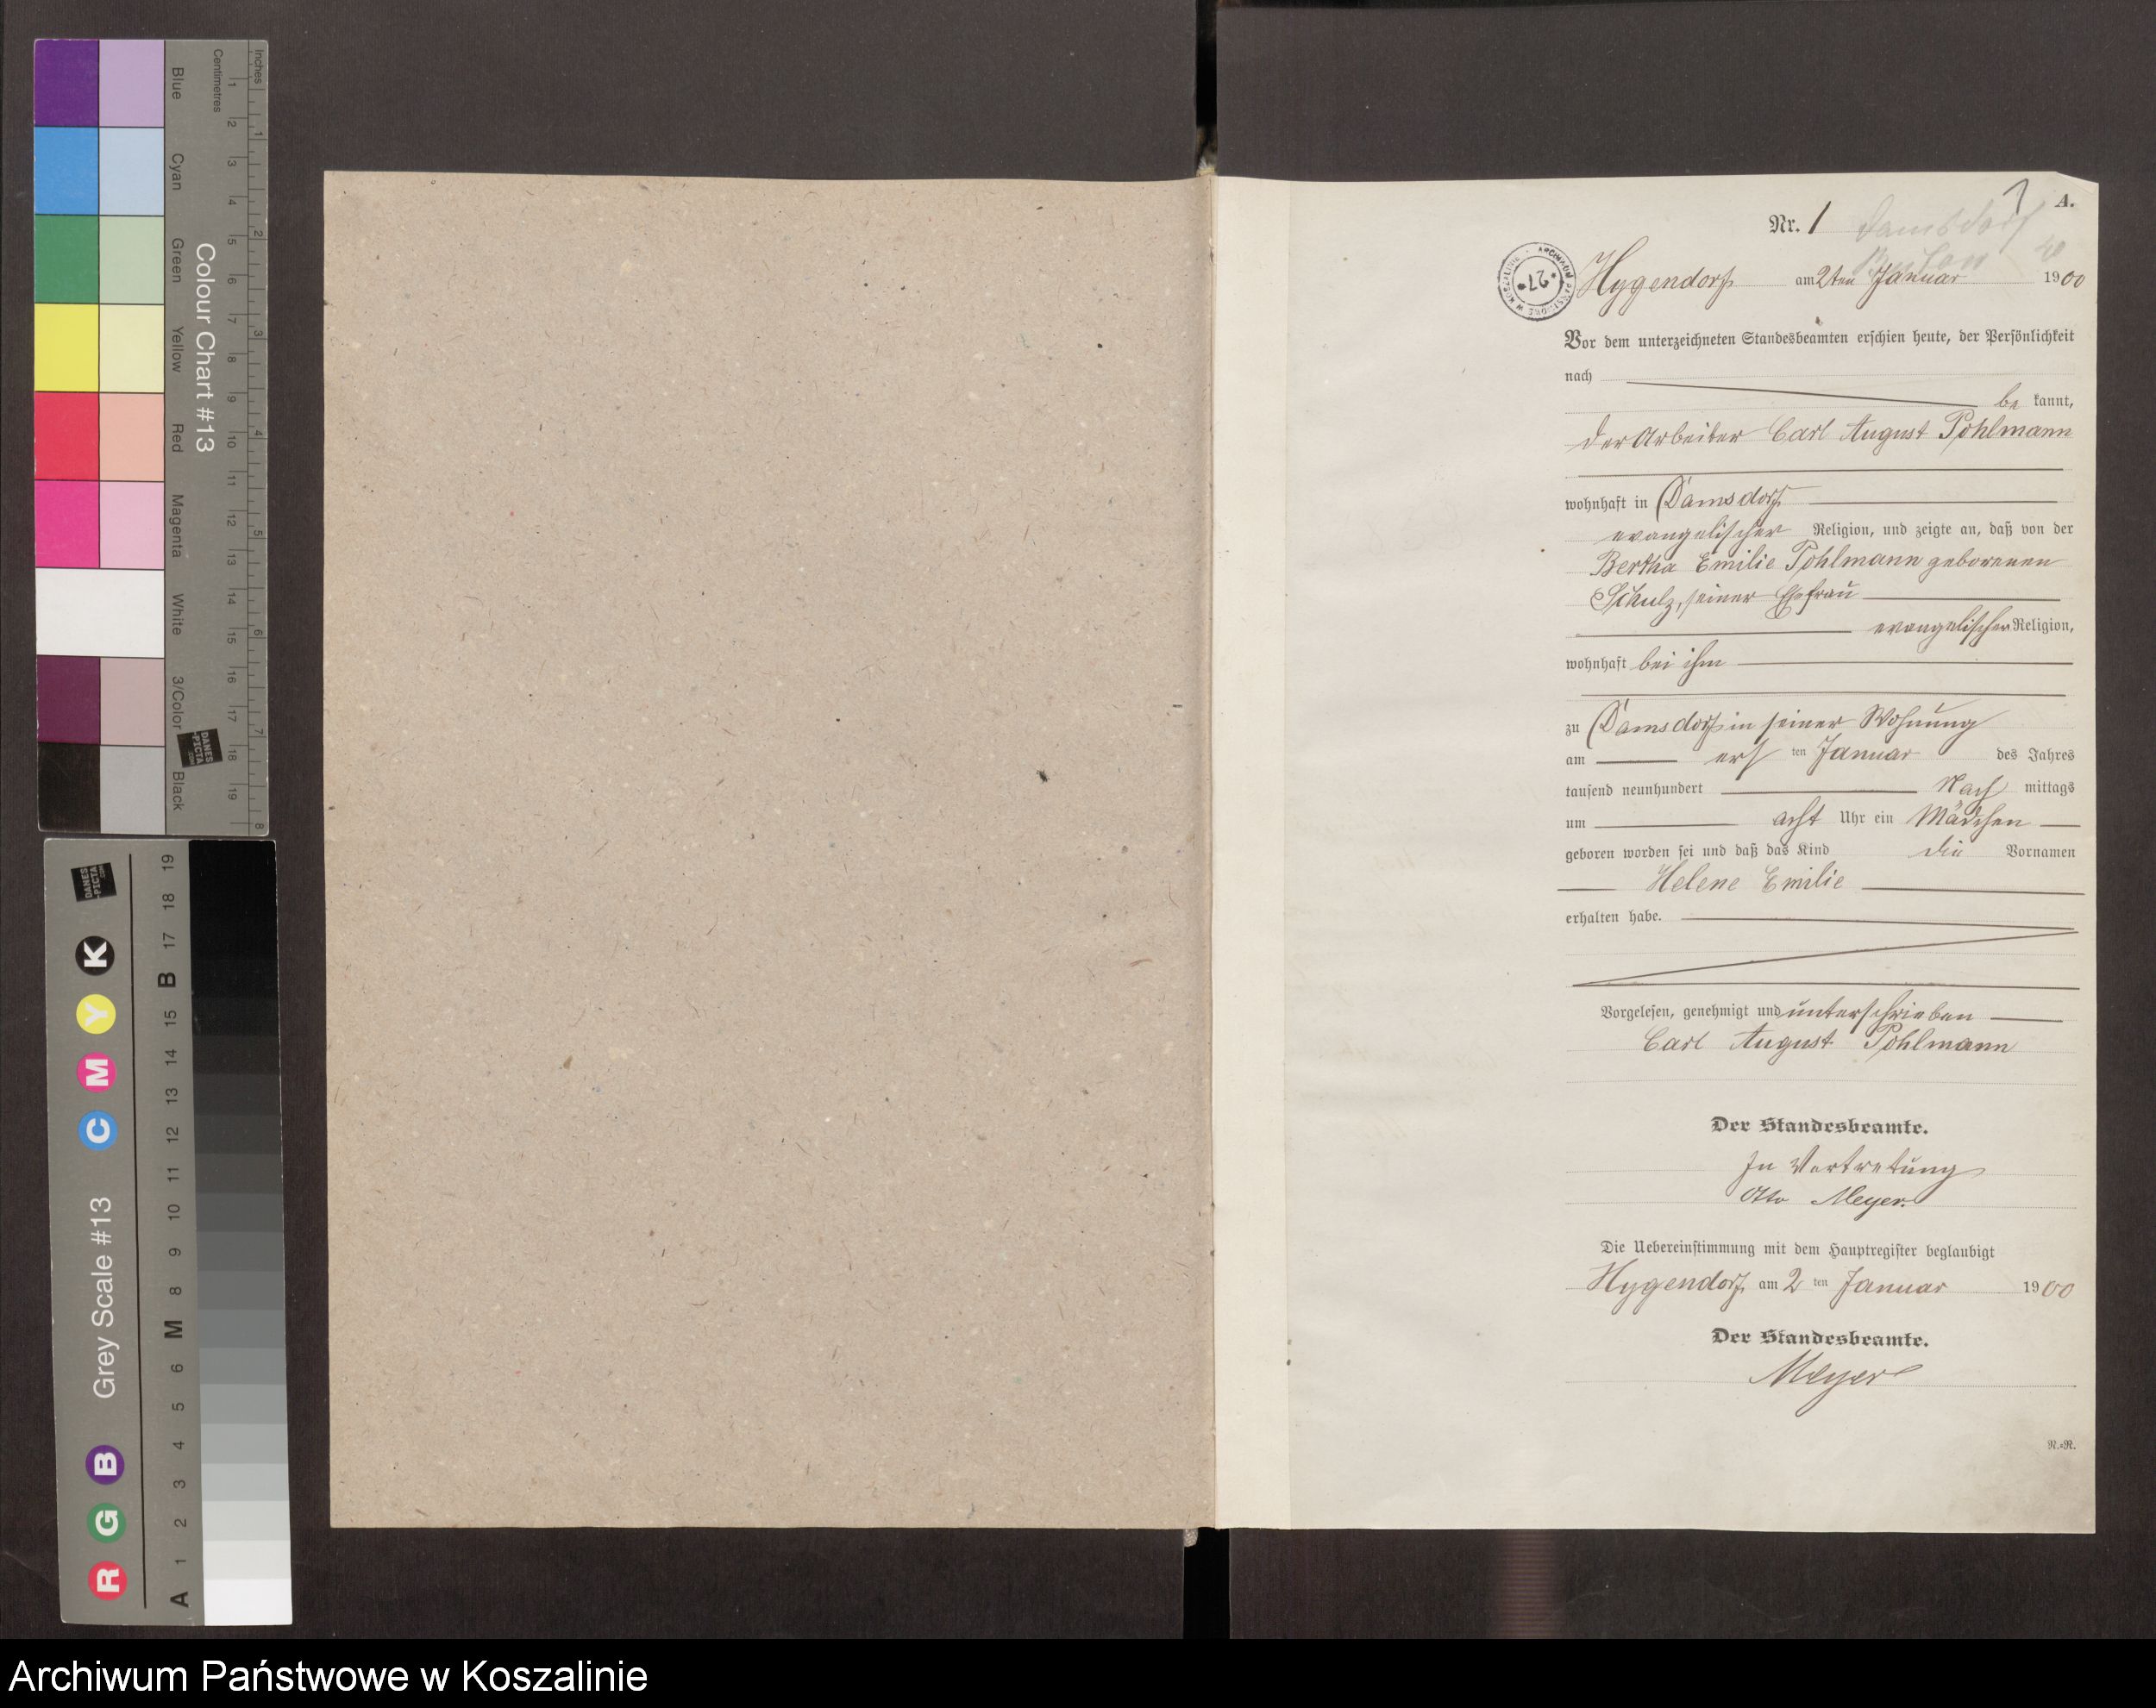 Blue
Cyan
Green
Yellow
Red
Magenta
White
3/Color
Black
Colour Chart #13
Centimetres
Inches
1 2 3 4 5 6 7 8 9 10 11 12 13 14 15 16 17 18 19
1 2 3 4 5 6 7 8
DANES
-PICTA
.COM
DANES
-PICTA
.COM
R G B Grey Scale #13 C M Y K
A 1 2 3 4 5 6 M 8 9 10 11 12 13 14 15 B 17 18 19
1
A.
Nr. 1
Damsdorf
27
Hygendorf am 2ten Januar 1900
Vor dem unterzeichneten Standesbeamten erschien heute, der Persönlichkeit
nach
be kannt,
der Arbeiter Carl August Pohlmann
wohnhaft in Damsdorf
evangelischer Religion, und zeigte an, daß von der
Bertha Emilie Pohlmann geborenen
Schulz, seiner Ehefrau
evangelischer Religion,
wohnhaft bei ihm
zu Damsdorf in seiner Wohnung
am ersten Januar des Jahres
tausend neunhundert Nach mittags
um acht Uhr ein Mädchen
geboren worden sei und daß das Kind die Vornamen
Helene Emilie
erhalten habe.
Vorgelesen, genehmigt und unterschrieben
Carl August Pohlmann
Der Standesbeamte.
In Vertretung
Otto Meyer.
Die Uebereinstimmung mit dem Hauptregister beglaubigt
Hygendorf, am 2 ten Januar 1900
Der Standesbeamte.
Meyer
R.=R.
Archiwum Państwowe w Koszalinie